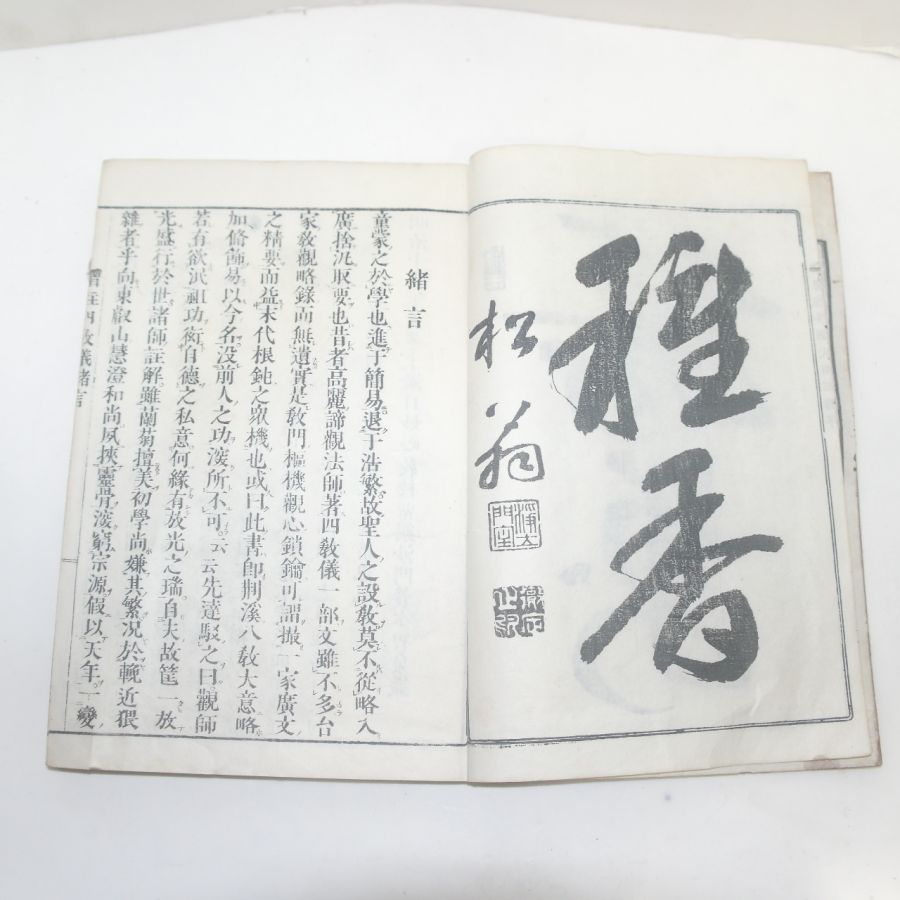 種香
松翁
緒言
童蒙之於學也進于簡易退于浩繁故聖人之設敎莫不從略入
廣捨汎取要也昔者高麗諦觀法師著四敎儀一部文雖不多台
家敎觀略錄尚無遺實是敎門樞機觀心鎖鑰可謂撮一家廣文
之精要而益末代根鈍之衆機也或曰此書卽荆溪八敎大意略
加脩飾易以今名没前人之功深所不可云云先達駁之曰觀師
若有欲泯祖功衒自德之私意何緣有放光之瑞自夫故筐一放
光盛行於世諸師註解雖蘭菊擅美初學尚嫌其繁況於輓近猥
雜者乎向東叡山慧澄和尚夙挾靈骨深窮宗源假以天年一變
四敎儀緒言